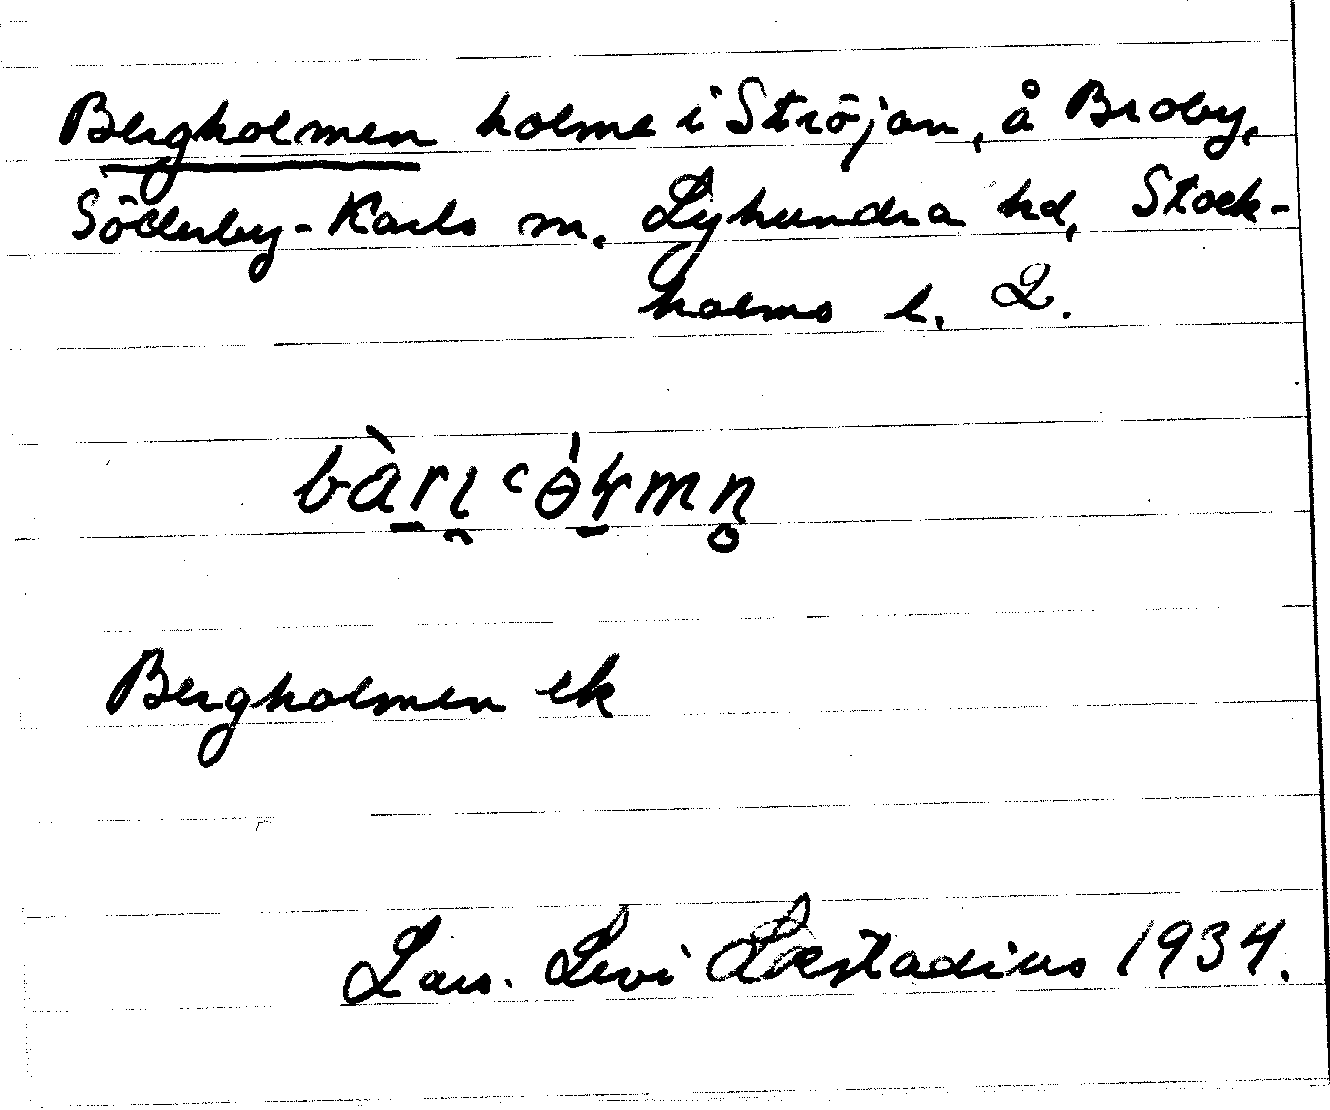 Bergholmen holme i Ströjan, å Broby,
Söderby-Karls sn. Lyhundra hd, Stock-
holms l. 2.
Bergholmen ek
Lars. Levi Læstadius 1934.